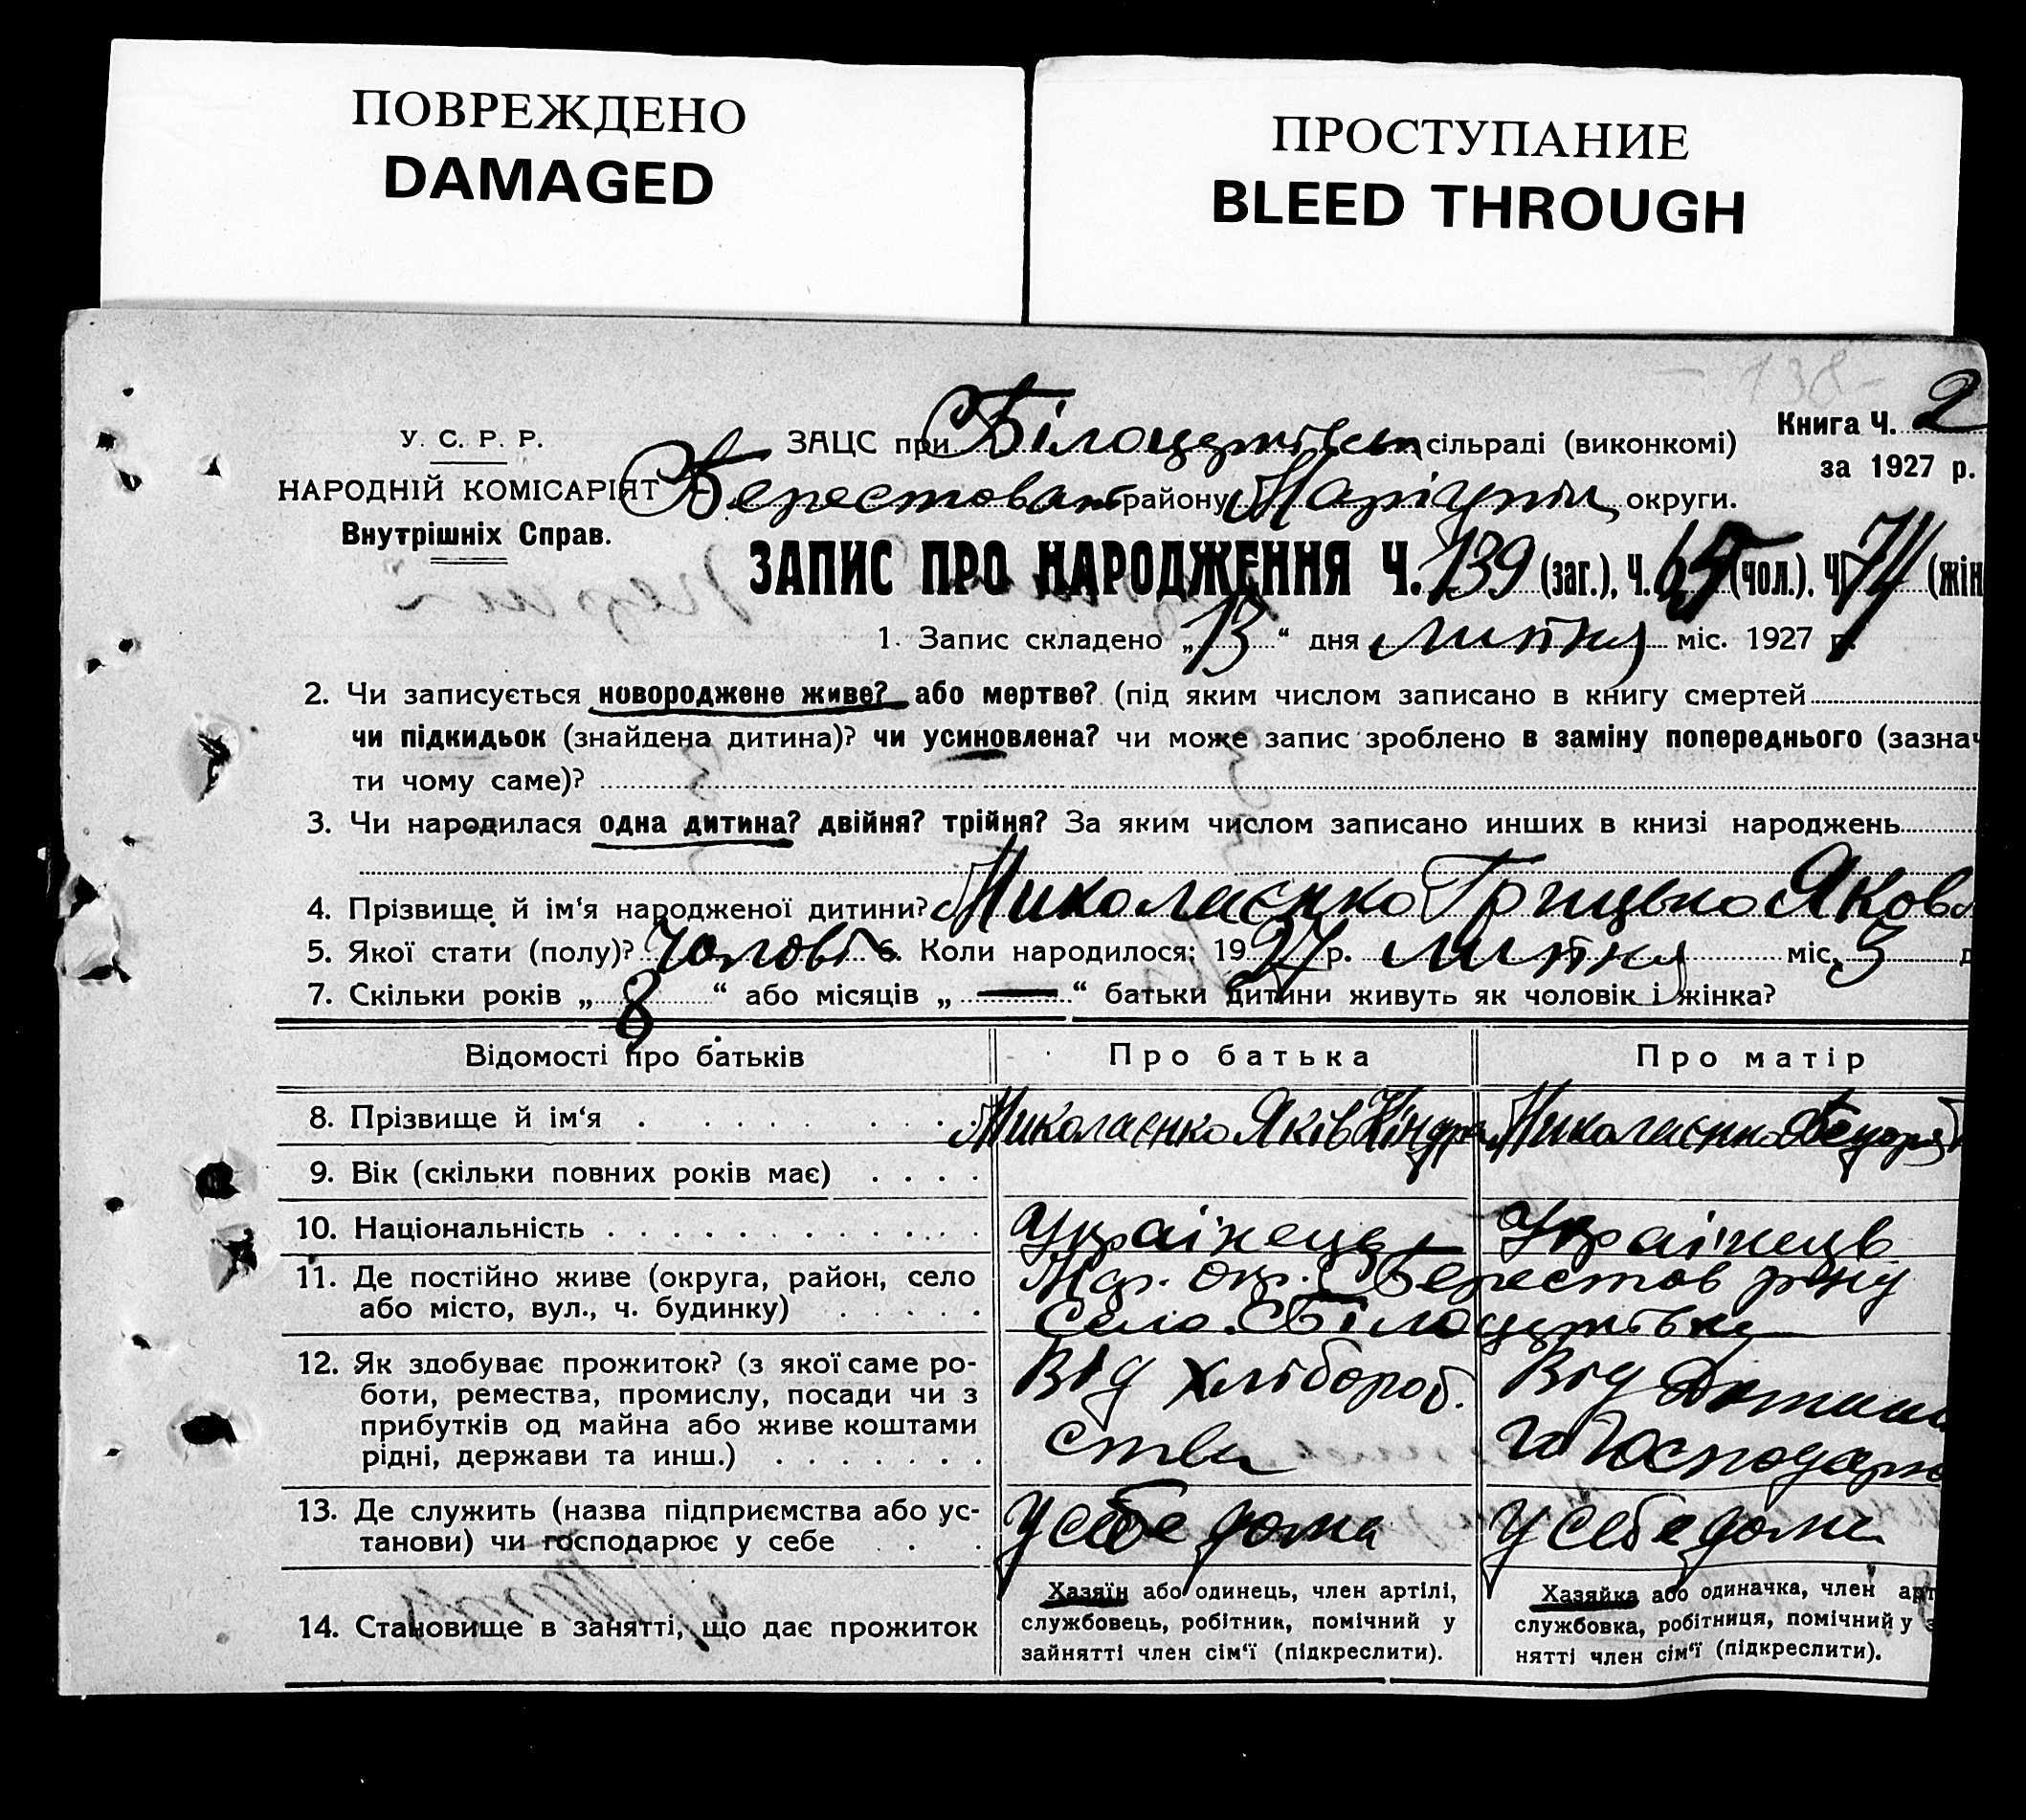 ПОВРЕЖДЕНО
DAMAGED
ПРОСТУПАНИЕ
BLEED THROUGH
- 138 -
Книга Ч. 2
за 1927 р.
У. С. Р. Р.
НАРОДНІЙ КОМІСАРІЯТ
Внутрішніх Справ.
ЗАЦС при сільраді (виконкомі)
району округи.
ЗАПИС ПРО НАРОДЖЕННЯ Ч. 139 (заг.), Ч. 65 (чол.). Ч. 74 (жін
1. Запис складено „ 13 “ дня липня міс. 1927 р.
2. Чи записується новороджене живе? або мертве? (під яким числом записано в книгу смертей
чи підкидьок (знайдена дитина)? чи усиновлена? чи може запис зроблено в заміну попереднього (зазнач
ти чому саме)?
3. Чи народилася одна дитина? двійня? трійня? За яким числом записано инших в книзі народжень
4. Прізвище й ім‘я народженої дитини? Николаєнко Грицько Яков
5. Якої стати (полу)? Чолові 6. Коли народилося: 1927 р. липня міс. 3 д
7. Скільки років „ 8 “ або місяців „ — “ батьки дитини живуть як чоловік і жінка?
Відомості про батьків Про батька Про матір
8. Прізвище й ім‘я Николаєнко Яків Кіндра Николаєнко
9. Вік (скільки повних років має)
10. Національність Українець Українець
11. Де постійно живе (округа, район, село Мар. окр. Берестов р-ну
або місто, вул., ч. будинку) село
12. Як здобуває прожиток? (з якої саме ро- Від хлібороб. Від
боти, ремества, промислу, посади чи з
прибутків од майна або живе коштами ства
рідні, держави та инш.)
13. Де служить (назва підприємства або ус- У себе дома У себе дома
танови) чи господарює у себе
14. Становище в занятті, що дає прожиток
Хазяїн або одинець, член артілі,
службовець, робітник, помічний у
зайнятті член сім‘ї (підкреслити).
Хазяйка або одиначка, член арт
службовка, робітниця, помічний у з
нятті член сім‘ї (підкреслити).